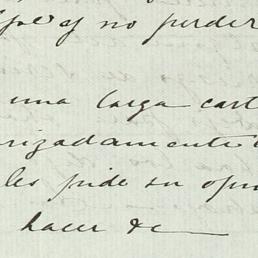 y no perder
una larga cart
orizadamente
les pide su opin
hacer &c